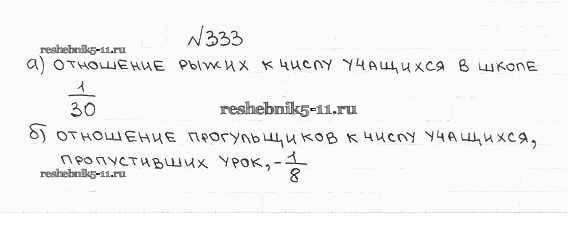 №333
reshebnik5-11.ru
а) отношение рыжих к числу учащихся в школе
1/30
reshebnik5-11.ru
б) отношение прогульщиков к числу учащихся,
пропустивших урок, - 1/8
reshebnik5-11.ru